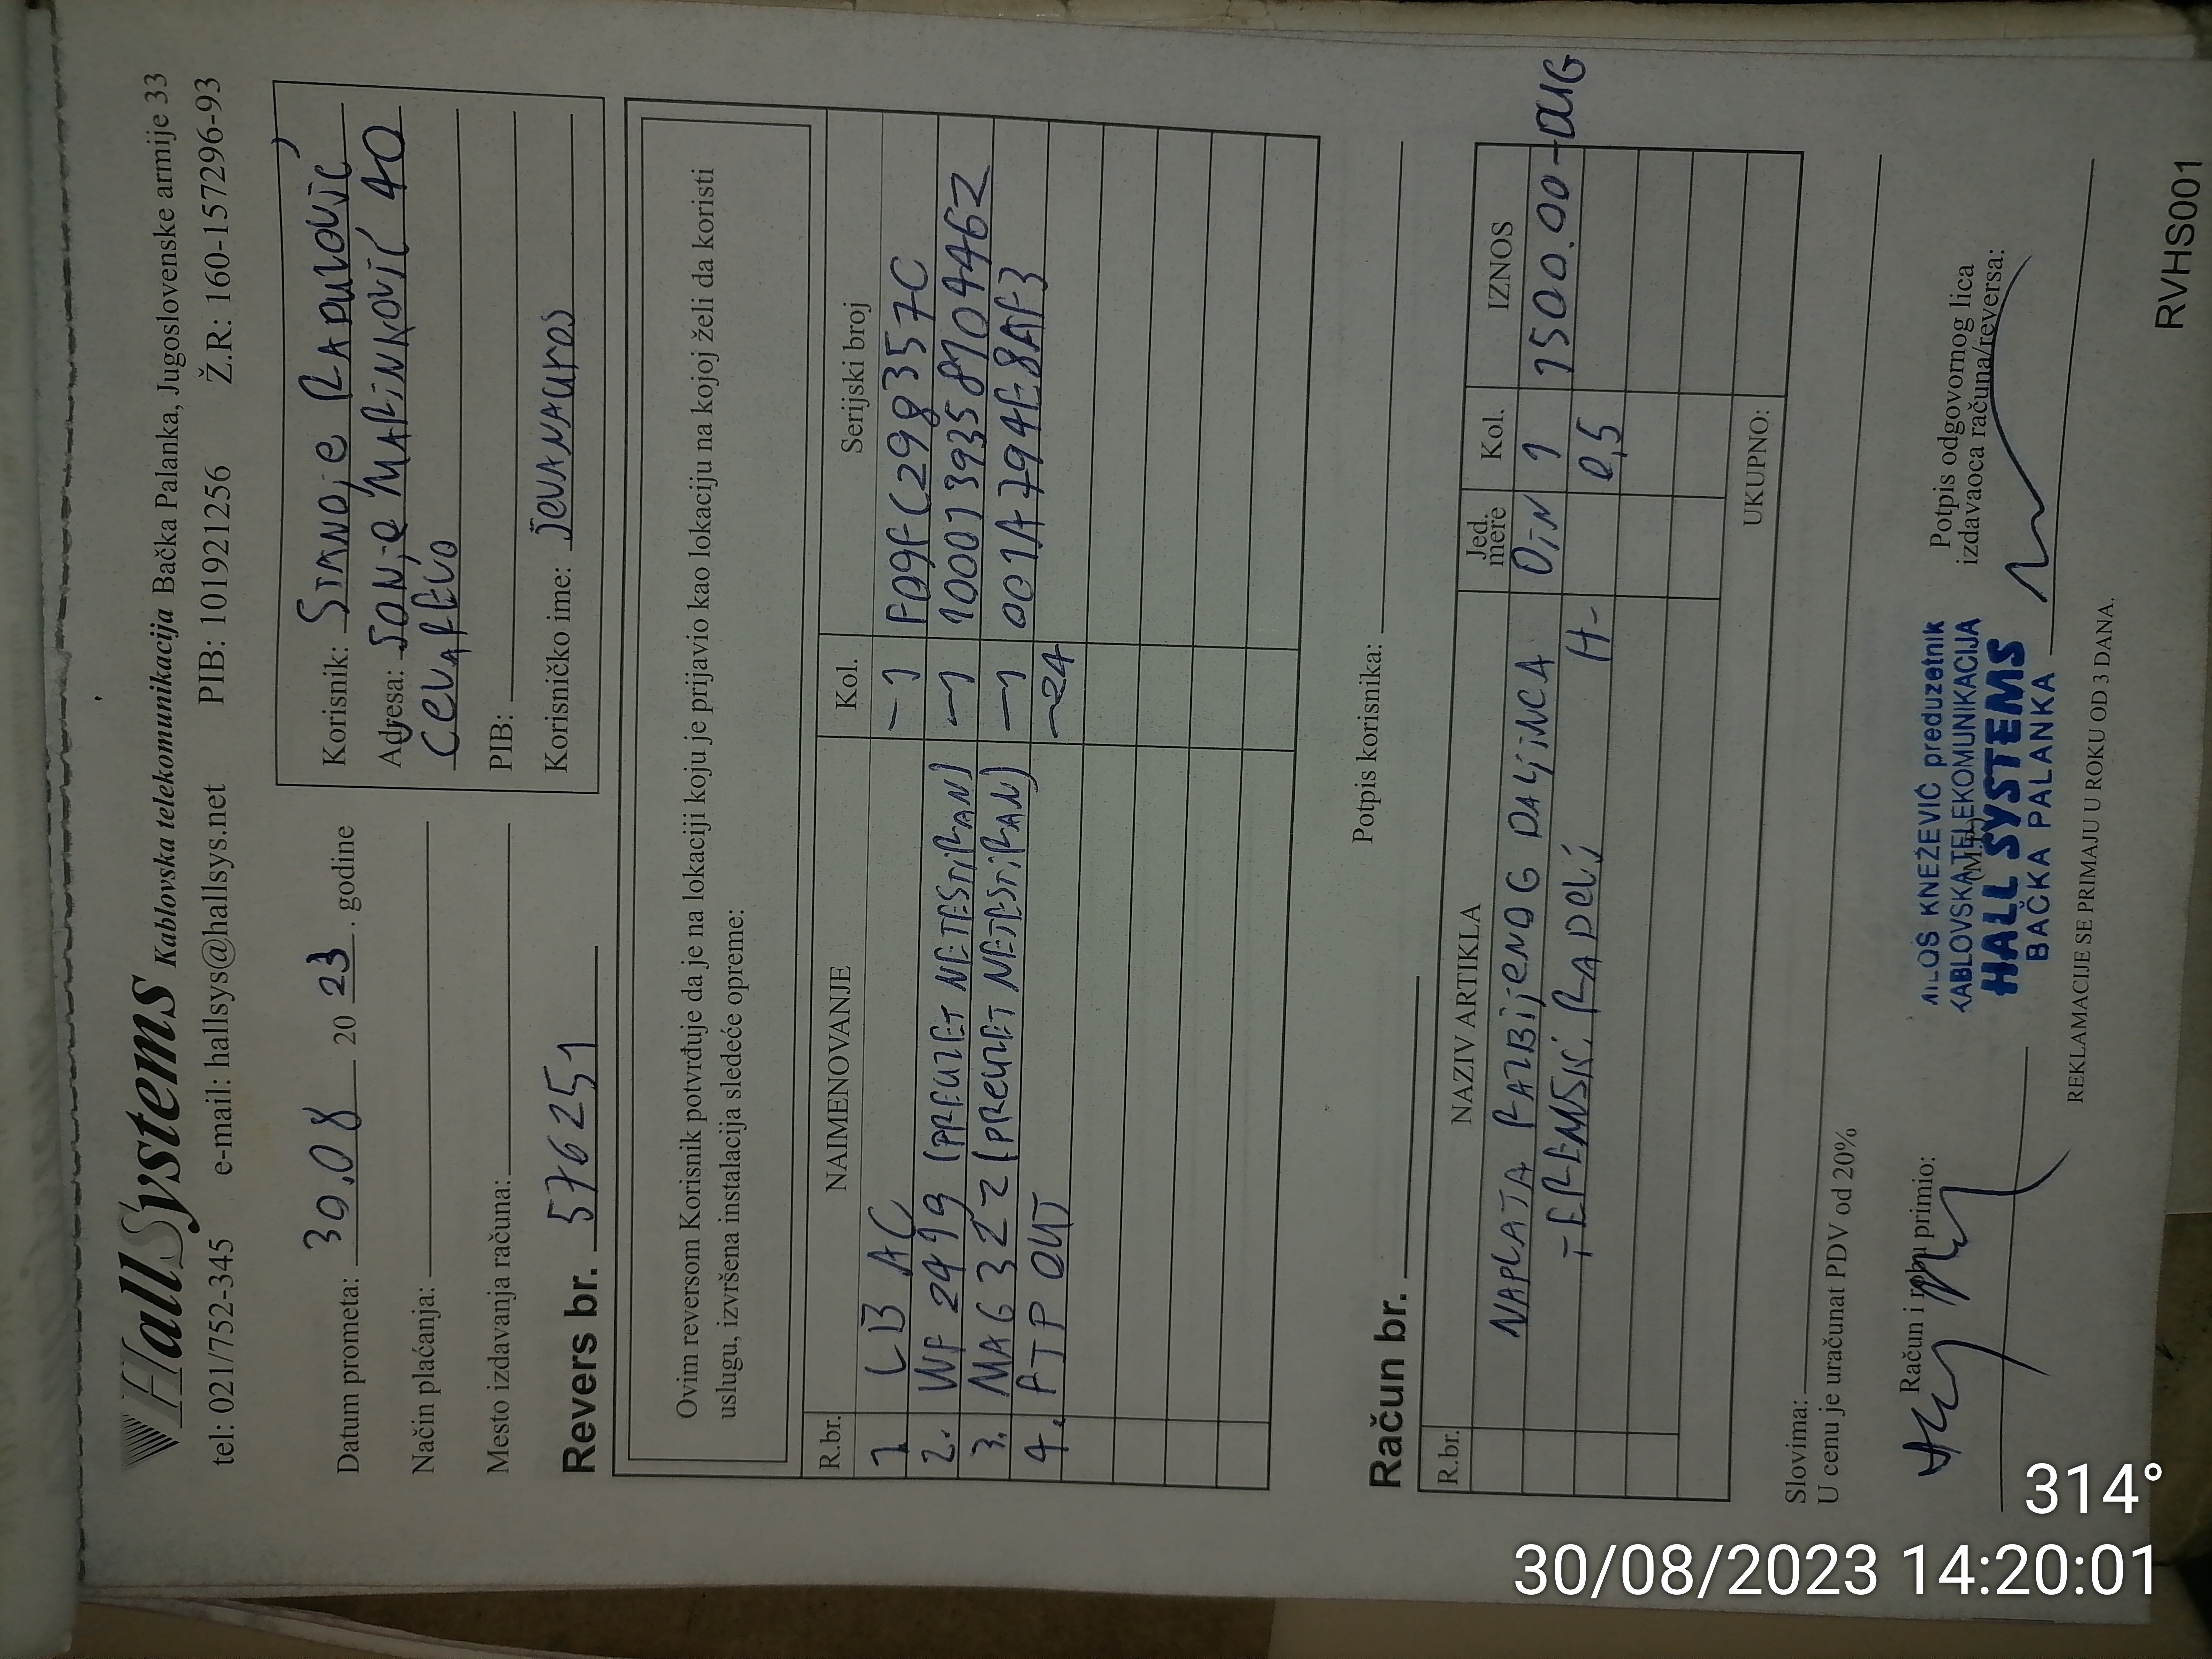 HallSystems Kablovska telekomunikacija Bačka Palanka, Jugoslovenske armije 33
tel: 021/752-345 e-mail: hallsys@hallsys.net PIB: 101921256 Ž.R: 160-157296-93
Datum prometa: 30.08 20 23. godine
Način plaćanja:
Mesto izdavanja računa:
Korisnik: STANOJE RADULOVIĆ
Adresa: SONJE MARINKOVIĆ 40
CEVAREVO
PIB:
Korisničko ime:
Revers br. 576251
Ovim reversom Korisnik potvrđuje da je na lokaciji koju je prijavio kao lokaciju na kojoj želi da koristi
uslugu, izvršena instalacija sledeće opreme:
R.br. NAIMENOVANJE Kol. Serijski broj
1 LB AC -1 F09FC298357C
2. WF 2419 (PREUZET NETESTIRAN) -1
3. MAG 322 (PREUZET NETESTIRAN) -1 001A794FE8AF3
4. FTP OUT -24
Potpis korisnika:
Račun br.
R.br. NAZIV ARTIKLA Jed. mere Kol. IZNOS
NAPLATA RAZBIJENOG DALJINCA DIN 1 1500.00 - DUG
TERENSKI RADOVI H- 0,5
UKUPNO:
Slovima:
U cenu je uračunat PDV od 20%
Račun i robu primio:
MILOŠ KNEŽEVIĆ preduzetnik
KABLOVSKA TELEKOMUNIKACIJA
HALL SYSTEMS
BAČKA PALANKA
Potpis odgovornog lica
izdavaoca računa/reversa:
REKLAMACIJE SE PRIMAJU U ROKU OD 3 DANA.
RVHS001
314°
30/08/2023 14:20:01